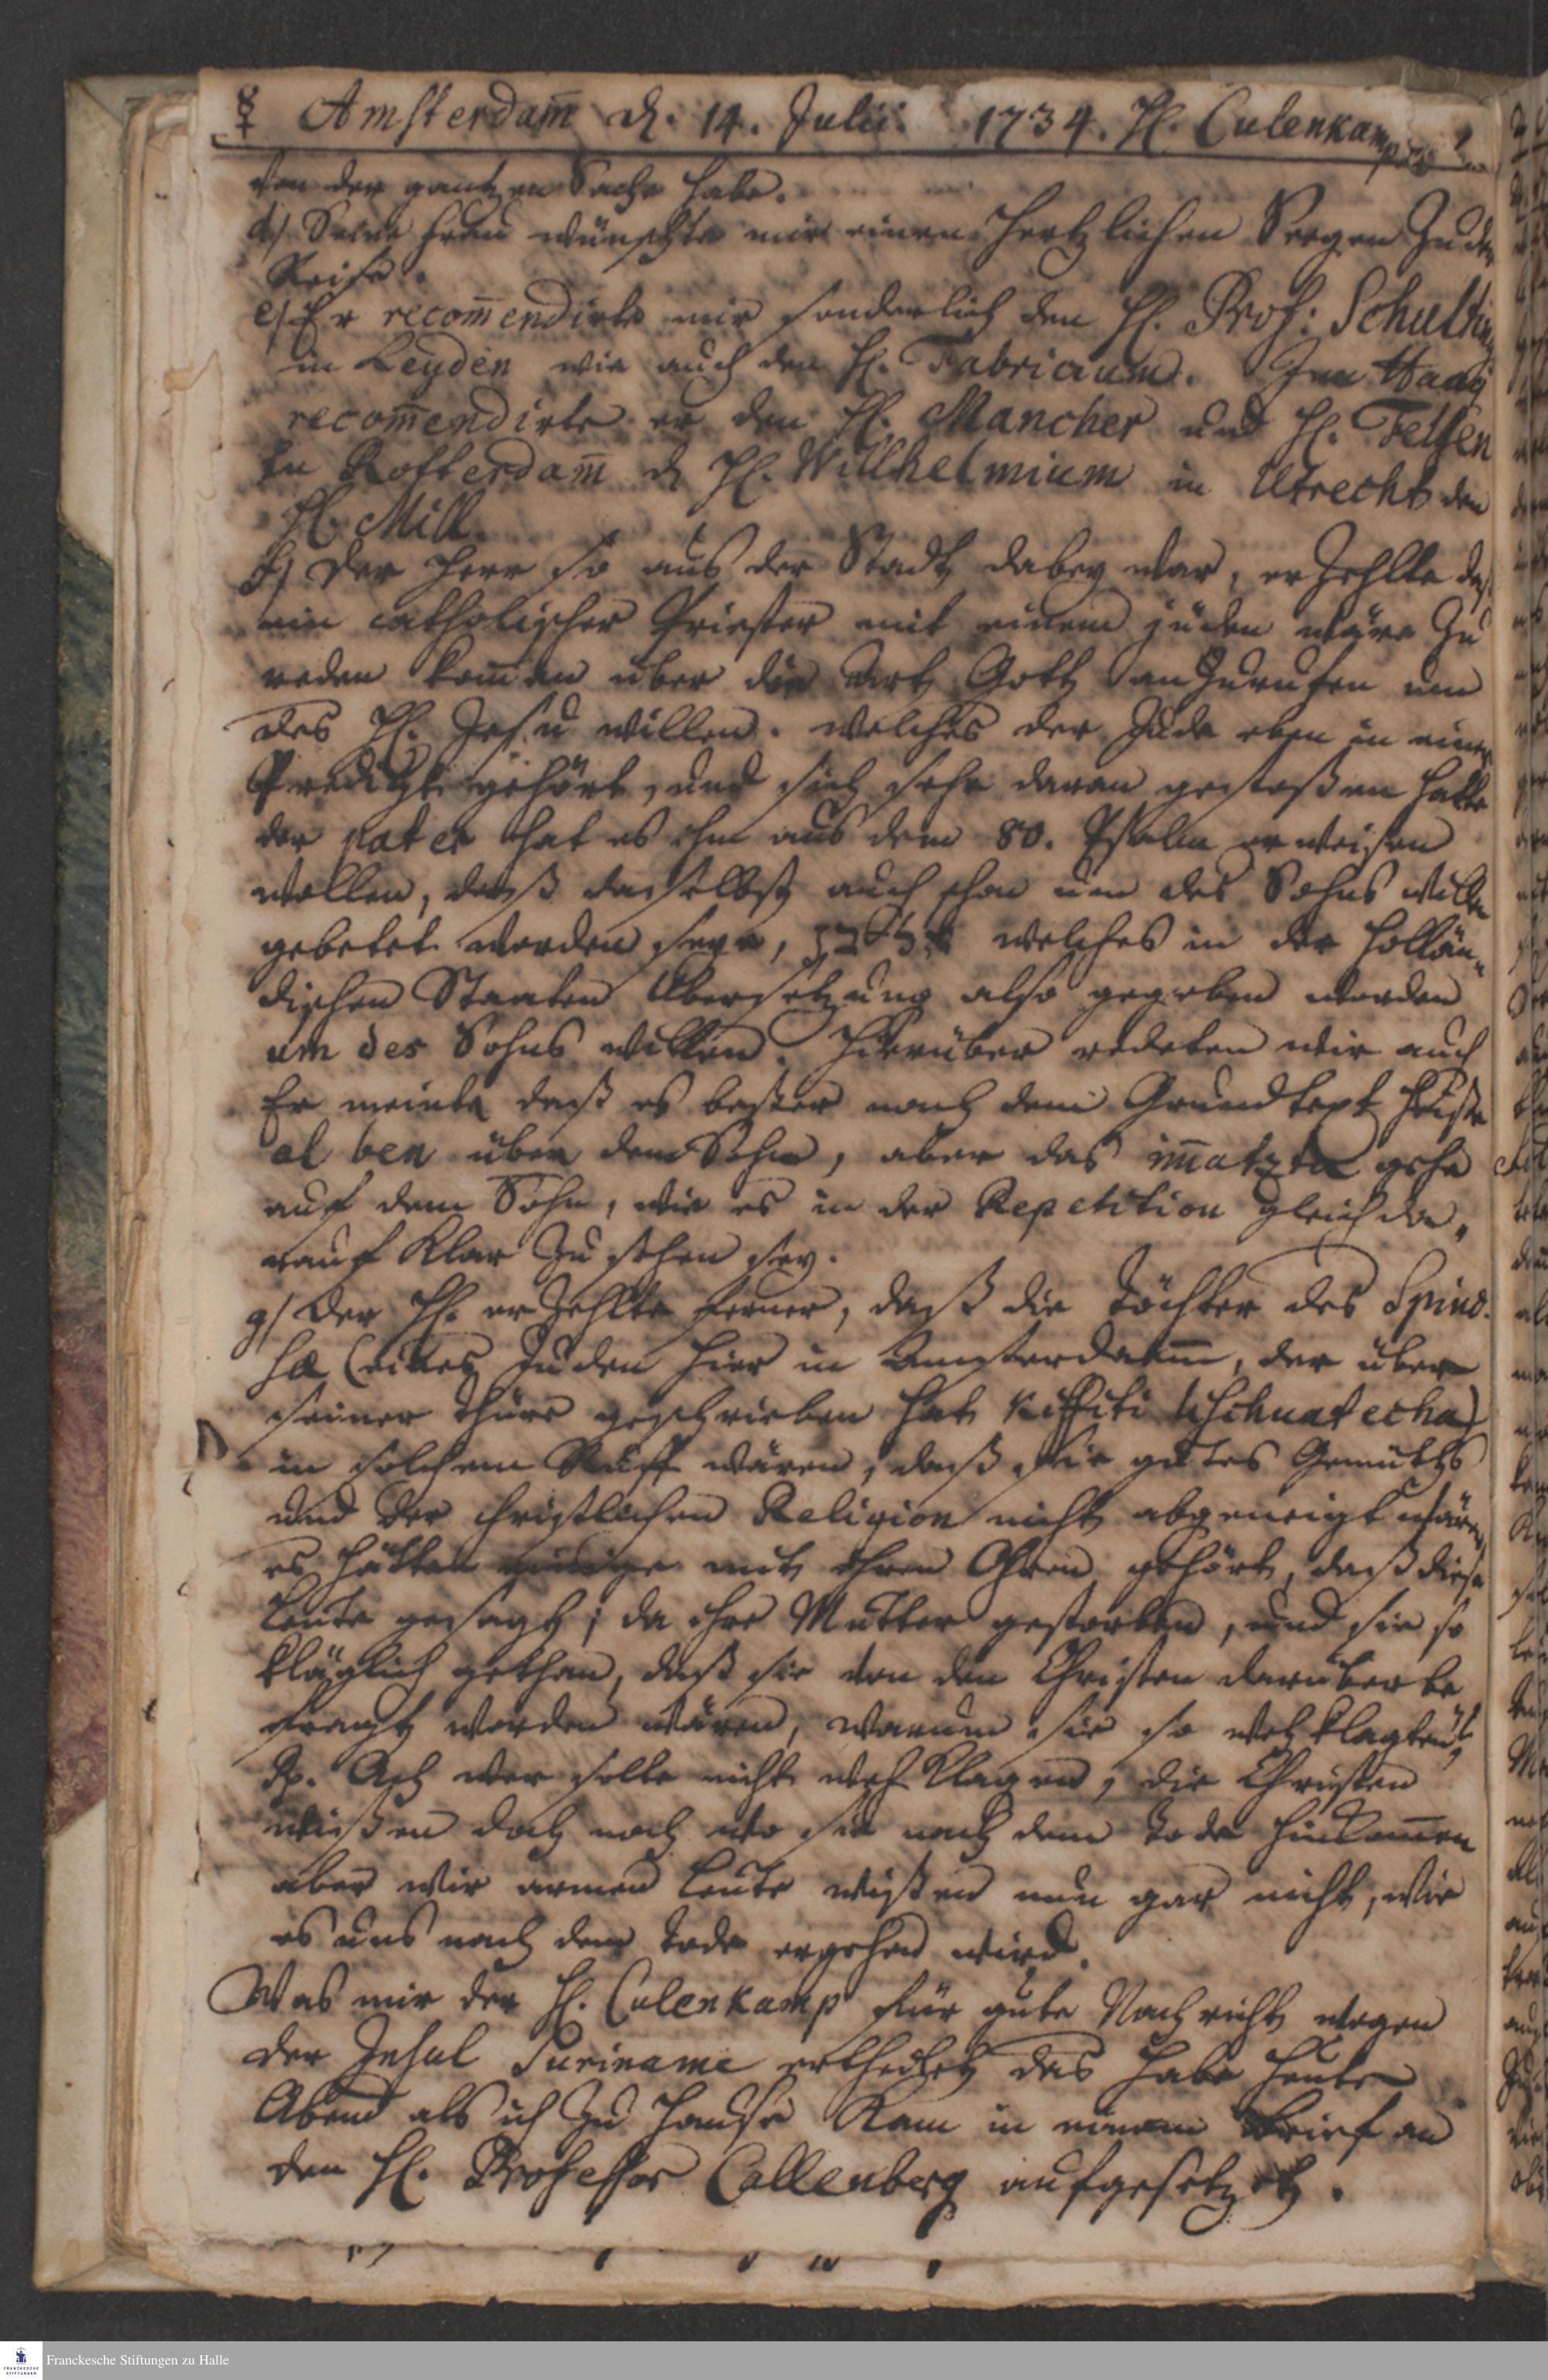 ☿ Amsterdam̅ d. 14. Julii. 1734. H. Culenkamp
von der gantzen Sache habe.
d) Seine Frau wünschte mir einen hertzlichen Seegen zu der
Reise.
e) Er recom̅endirte mir sonderlich den H. Prof: Schulting
in Leyden wie auch den H. Fabricium. Im Haag
recom̅endirte er den H. Mancher und H. Felsen
In Rotterdam̅ d H. Willhelmium in Utrecht den
H. Mill.
f) Der Herr so aus der Stadt dabey war, erzehlte daß
ein catholischer Priester mit einem Juden wäre zu
reden kom̅en über die Art Gott anzurufen um
des H. Jesu willen. welches der Jude eben in einer
Predigt gehört, und sich sehr daran gestoßen hatte
der pater hat es ihm aus dem 80. Psalm erweisen
wollen, daß daselbst auch schon um des Sohns willen
gebetet worden seye, welches in der Hollän„
dischen Staaten Übersetzung also gegeben worden
um des Sohns willen. Hierüber redeten wir auch
Er meinte daß es besser nach dem Grundtext heiße
al ben über dem Sohn, aber das im̅atzta gehe
auf dem Sohn, wie es in der Repetition gleich da„
rauf klar zu sehen sey.
g) Der H. erzehlte ferner, daß die Töchter des Spino„
ha (eines Juden hier in Amsterdam̅, der über
seiner Thüre geschrieben hat Kiffiti lischuatecha)
in solchem Ruff wären, daß sie gutes Gemüths
und der christlichen Religion nicht abgeneigt wären
es hätten einige mit ihren Ohren gehört, daß diese
Leute gesagt; da ihre Mutter gestorben, und sie so
kläglich gethan, daß sie von den Christen darüber be
fragt worden wären, warum sie so wehklagten,
Rp. Ach wer solte nicht wehklagen, die Christen
wißen doch noch wo sie nach dem Tode hinkom̅en
aber wir armen Leute wißen nun gar nicht, wie
es uns nach dem Tode ergehen wird.
Was mir der H. Culenkamp für gute Nachricht wegen
der Insul Suriname ertheilet das habe heute
Abend als ich zu Hause kam in einem Brief an
den H. Professor Callenberg aufgesetzet.
Franckesche Stiftungen zu Halle